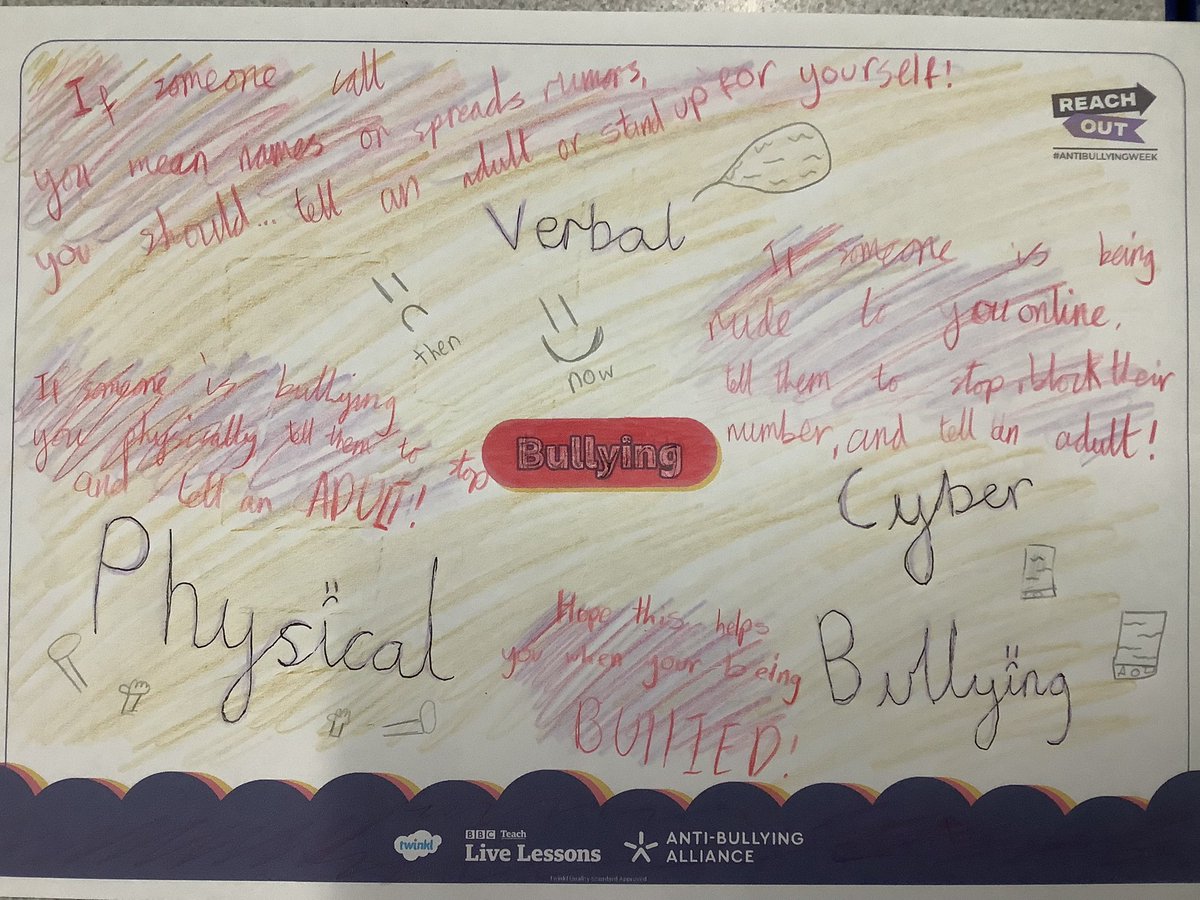 If someone call
you mean names or spreads rumors,
you should... tell an adult or stand up for yourself!
REACH
OUT
#ANTIBULLYINGWEEK
Verbal
then
now
If someone is being
rude to you online,
tell them to stop, block their
number, and tell an adult!
If someone is bullying
you physically, tell them to stop
and tell an ADULT!
Bullying
Cyber
Bullying
Physical
Hope this helps
you when your being
BULLIED!
twinkl
BBC Teach
Live Lessons
ANTI-BULLYING
ALLIANCE
Twinkl Quality Standard Approved